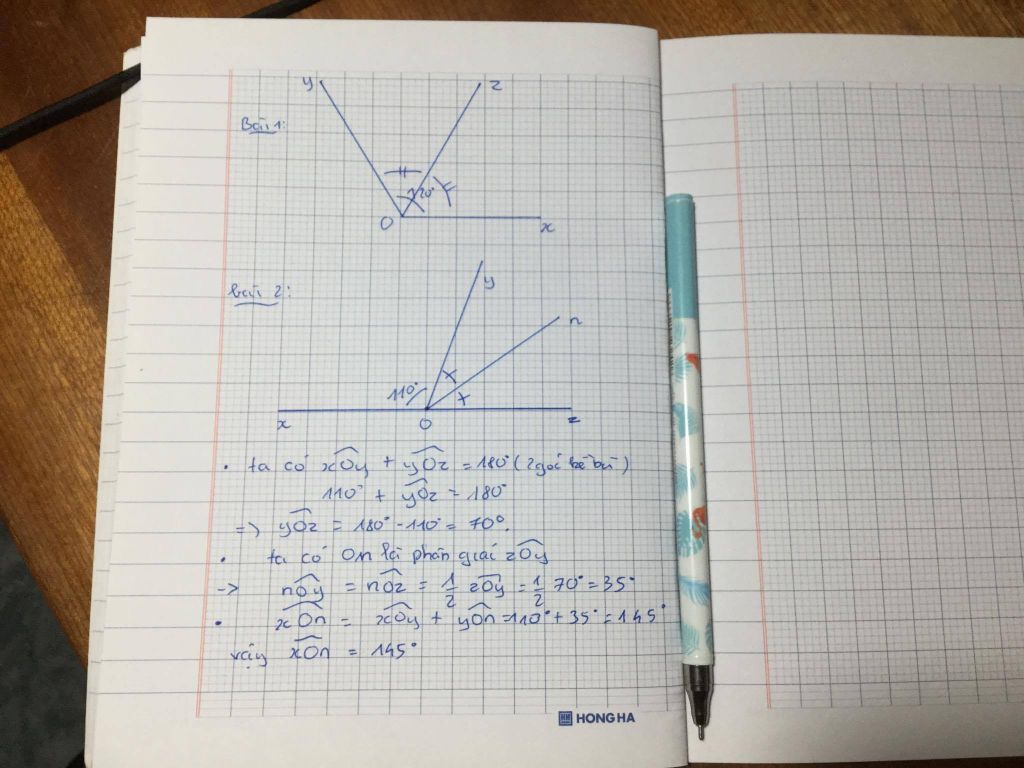 y
z
Bài 1:
120°
O
x
y
bài 2:
n
110°
x
O
z
• ta có xÔy + yÔz = 180° (2 góc kề bù)
110° + yÔz = 180°
=> yÔz = 180° - 110° = 70°.
• ta có On là phân giai zÔy
-> nÔy = nÔz = 1/2 zÔy = 1/2 70° = 35°
• xÔn = xÔy + yÔn = 110° + 35° = 145°
vậy xÔn = 145°
HONG HA